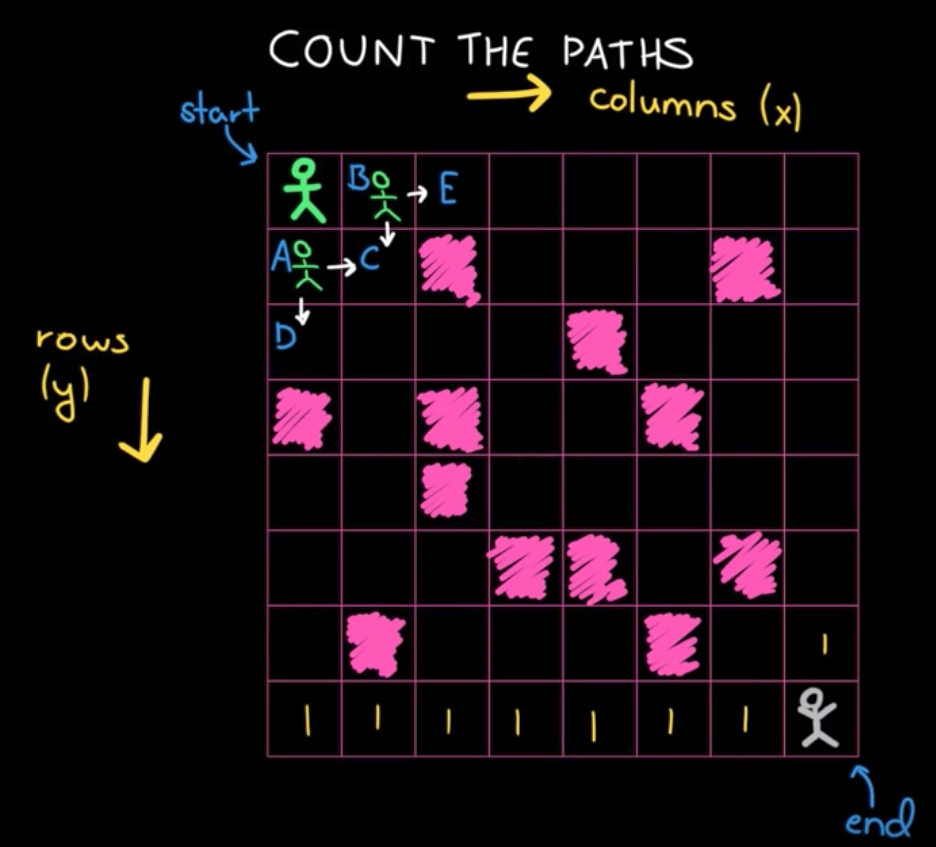 COUNT THE PATHS
→ columns (x)
start
B → E
A → C
D
rows
(y)
1
1 1 1 1 1 1 1
end